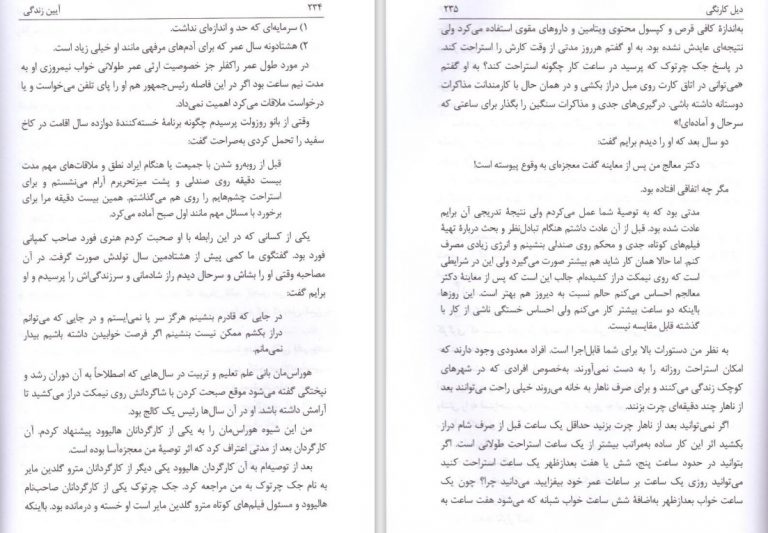 ۲۳۴ آیین زندگی
۱) سرمایه‌ای که حد و اندازه‌ای نداشت.
۲) هشتادونه سال عمر که برای آدم‌های مرفهی مانند او خیلی زیاد است.
در مورد طول عمر راکفلر جز خصوصیت ارثی عمر طولانی خواب نیمروزی او به
مدت نیم ساعت بود اگر در این فاصله رئیس‌جمهور هم او را پای تلفن می‌خواست و یا
درخواست ملاقات می‌کرد اهمیت نمی‌داد.
وقتی از بانو روزولت پرسیدم چگونه برنامهٔ خسته‌کنندهٔ دوازده سال اقامت در کاخ
سفید را تحمل کردی به‌صراحت گفت:
قبل از روبه‌رو شدن با جمعیت یا هنگام ایراد نطق و ملاقات‌های مهم مدت
بیست دقیقه روی صندلی و پشت میزتحریرم آرام می‌نشستم و برای
استراحت چشم‌هایم را روی هم می‌گذاشتم. همین بیست دقیقه مرا برای
برخورد با مسائل مهم مانند اول صبح آماده می‌کرد.
یکی از کسانی که در این رابطه با او صحبت کردم هنری فورد صاحب کمپانی
فورد بود. گفتگوی ما کمی پیش از هشتادمین سال تولدش صورت گرفت. در آن
مصاحبه وقتی او را بشاش و سرحال دیدم راز شادمانی و سرزندگی‌اش را پرسیدم و او
برایم گفت:
در جایی که قادرم بنشینم هرگز سر پا نمی‌ایستم و در جایی که می‌توانم
دراز بکشم ممکن نیست بنشینم اگر فرصت خوابیدن داشته باشم بیدار
نمی‌مانم.
هوراس‌مان بانی علم تعلیم و تربیت در سال‌هایی که اصطلاحاً به آن دوران رشد و
نپختگی گفته می‌شود موقع صبحت کردن با شاگردانش روی نیمکت دراز می‌کشید تا
آرامش داشته باشد. او در آن سال‌ها رئیس یک کالج بود.
من این شیوه هوراس‌مان را به یکی از کارگردانان هالیوود پیشنهاد کردم. آن
کارگردان بعد از مدتی اعتراف کرد که اثر توصیهٔ من معجزه‌آسا بوده است.
بعد از توصیه‌ام به آن کارگردان هالیوود یکی دیگر از کارگردانان مترو گلدین مایر
به نام جک چرتوک به من مراجعه کرد. جک چرتوک یکی از کارگردانان صاحب‌نام
هالیوود و مسئول فیلم‌های کوتاه مترو گلدین مایر است او خسته و درمانده بود. بااینکه
دیل کارنگی ۲۳۵
به‌اندازهٔ کافی قرص و کپسول محتوی ویتامین و داروهای مقوی استفاده می‌کرد ولی
نتیجه‌ای عایدش نشده بود. به او گفتم هرروز مدتی از وقت کارش را استراحت کند.
در پاسخ جک چرتوک که پرسید در ساعت کار چگونه استراحت کند؟ به او گفتم
«می‌توانی در اتاق کارت روی مبل دراز بکشی و در همان حال با کارمندانت مذاکرات
دوستانه داشته باشی. درگیری‌های جدی و مذاکرات سنگین را بگذار برای ساعتی که
سرحال و آماده‌ای!»
دو سال بعد که او را دیدم برایم گفت:
دکتر معالج من پس از معاینه گفت معجزه‌ای به وقوع پیوسته است!
مگر چه اتفاقی افتاده بود.
مدتی بود که به توصیهٔ شما عمل می‌کردم ولی نتیجهٔ تدریجی آن برایم
عادت شده بود. قبل از آن عادت داشتم هنگام تبادل‌نظر و بحث دربارهٔ تهیهٔ
فیلم‌های کوتاه، جدی و محکم روی صندلی بنشینم و انرژی زیادی مصرف
کنم. اما حالا همان کار شاید هم بیشتر صورت می‌گیرد ولی این در شرایطی
است که روی نیمکت دراز کشیده‌ام. جالب این است که پس از معاینهٔ دکتر
معالجم احساس می‌کنم حالم نسبت به دیروز هم بهتر است. این روزها
بااینکه دو ساعت بیشتر کار می‌کنم ولی احساس خستگی ناشی از کار با
گذشته قابل مقایسه نیست.
به نظر من دستورات بالا برای شما قابل‌اجرا است. افراد معدودی وجود دارند که
امکان استراحت روزانه را به دست نمی‌آورند. به‌خصوص افرادی که در شهرهای
کوچک زندگی می‌کنند و برای صرف ناهار به خانه می‌روند خیلی راحت می‌توانند بعد
از ناهار چند دقیقه‌ای چرت بزنند.
اگر نمی‌توانید بعد از ناهار چرت بزنید حداقل یک ساعت قبل از صرف شام دراز
بکشید اثر این کار ساده به‌مراتب بیشتر از یک ساعت استراحت طولانی است. اگر
بتوانید در حدود ساعت پنج، شش یا هفت بعدازظهر یک ساعت استراحت کنید
می‌توانید روزی یک ساعت بر ساعات عمر خود بیفزایید. می‌دانید چرا؟ چون یک
ساعت خواب بعدازظهر به‌اضافهٔ شش ساعت خواب شبانه که می‌شود هفت ساعت به